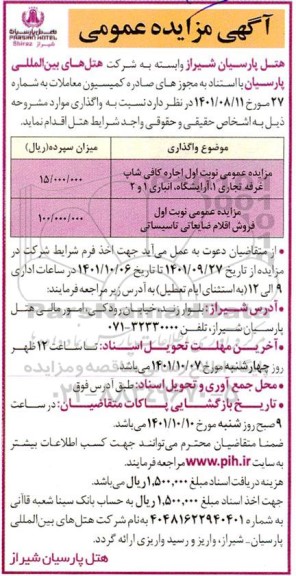 هتل پارسیان
PARSIAN HOTEL
Shiraz شیراز
آگهی مزایده عمومی
هتل پارسیان شیراز وابسته به شرکت هتل‌های بین‌المللی
پارسیان با استناد به مجوزهای صادره کمیسیون معاملات به شماره
۲۷ مورخ ۱۴۰۱/۰۸/۱۱ در نظر دارد نسبت به واگذاری موارد مشروحه
ذیل به اشخاص حقیقی و حقوقی واجد شرایط هتل اقدام نماید.
موضوع واگذاری
میزان سپرده(ریال)
مزایده عمومی نوبت اول اجاره کافی شاپ
غرفه تجاری ۱، آرایشگاه، انباری ۱ و ۲
۱۵/۰۰۰/۰۰۰
مزایده عمومی نوبت اول
فروش اقلام ضایعاتی تاسیساتی
۱۰۰/۰۰۰/۰۰۰
از متقاضیان دعوت به عمل می‌آید جهت اخذ فرم شرایط شرکت در
مزایده از تاریخ ۱۴۰۱/۰۹/۲۷ تا تاریخ ۱۴۰۱/۱۰/۰۶ در ساعات اداری
۹ الی ۱۲ (به استثنای ایام تعطیل) به آدرس زیر مراجعه فرمایند:
• آدرس شیراز: بلوار زند، خیابان رودکی، امور مالی هتل
پارسیان شیراز، تلفن ۳۲۳۳۰۰۰۰-۰۷۱
• آخرین مهلت تحویل اسناد: تا ساعت ۱۲ ظهر
روز چهارشنبه مورخ ۱۴۰۱/۱۰/۰۷ می‌باشد.
• محل جمع آوری و تحویل اسناد: طبق آدرس فوق
• تاریخ بازگشایی پاکات متقاضیان: در ساعت
۹ صبح روز شنبه مورخ ۱۴۰۱/۱۰/۱۰ می‌باشد.
ضمنا متقاضیان محترم می‌توانند جهت کسب اطلاعات بیشتر
به سایت www.pih.ir مراجعه فرمایند.
هزینه دریافت اسناد مبلغ ۱,۵۰۰,۰۰۰ ریال می‌باشد.
جهت اخذ اسناد مبلغ ۱,۵۰۰,۰۰۰ ریال به حساب بانک سینا شعبه قاآنی
به شماره ۴۰۴۸۱۶۲۲۹۴۰۴۰۱ به نام شرکت هتل‌های بین‌المللی
پارسیان - شیراز، واریز و رسید واریزی ارائه گردد.
هتل پارسیان شیراز